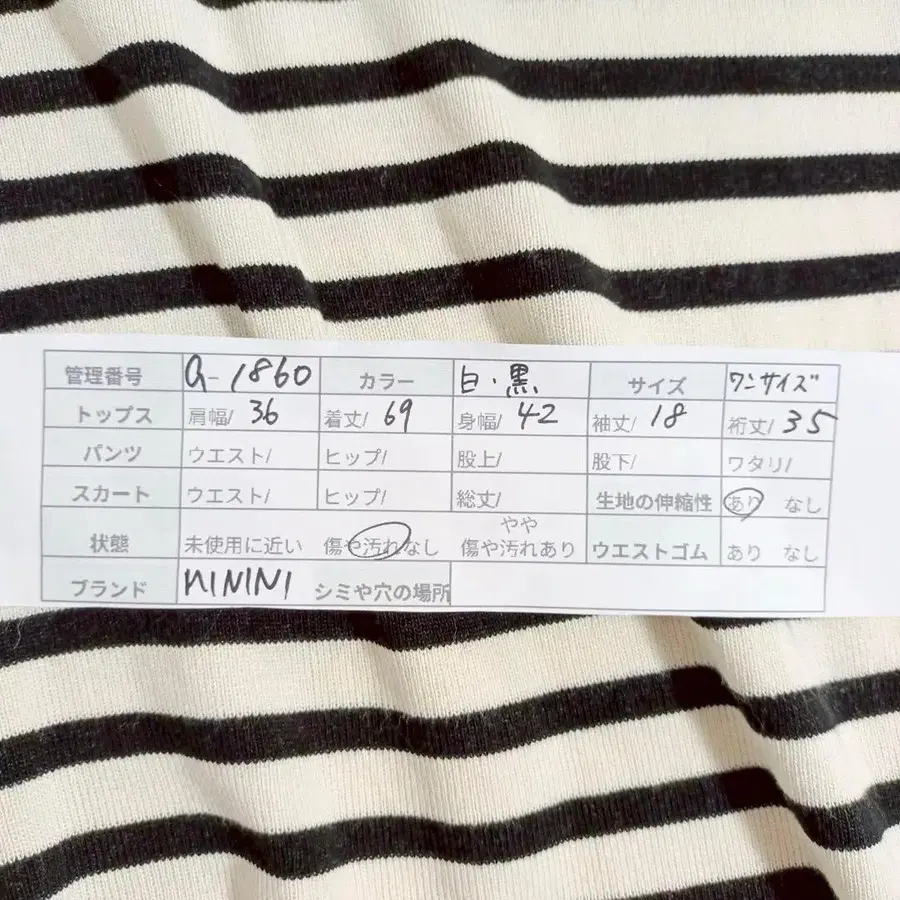 管理番号 a-1860 カラー 白・黒 サイズ ワンサイズ
トップス 肩幅/ 36 着丈/ 69 身幅/ 42 袖丈/ 18 裄丈/ 35
パンツ ウエスト/ ヒップ/ 股上/ 股下/ ワタリ/
スカート ウエスト/ ヒップ/ 総丈/ 生地の伸縮性 あり なし
状態 未使用に近い 傷や汚れなし やや傷や汚れあり ウエストゴム あり なし
ブランド NININI シミや穴の場所